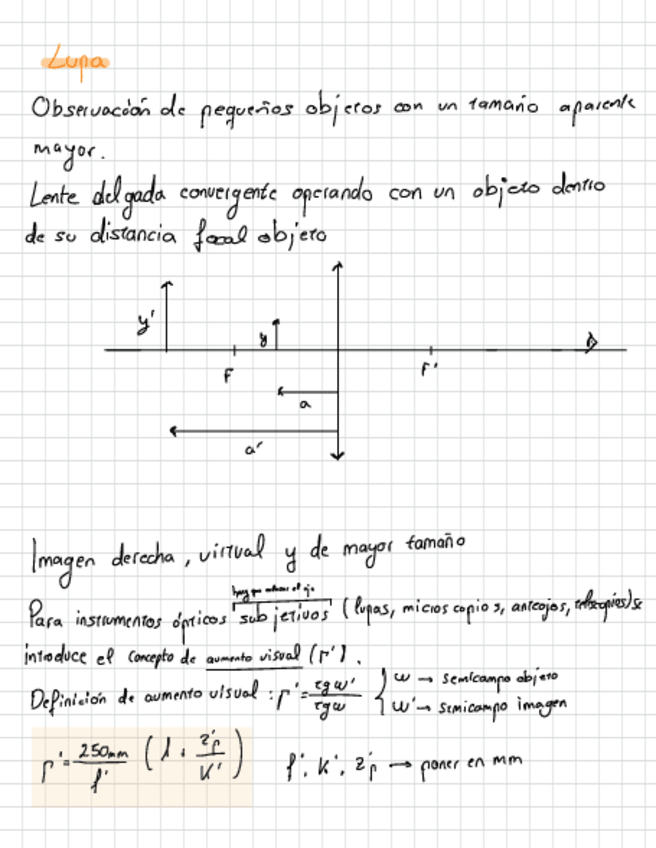 Lupa
Observación de pequeños objetos con un tamaño aparente
mayor.
Lente delgada convergente operando con un objeto dentro
de su distancia focal objeto
y'
y
F
F'
a
a'
Imagen derecha, virtual y de mayor tamaño
hay que el ojo
Para instrumentos ópticos subjetivos (lupas, microscopios, anteojos, telescopios) se
introduce el concepto de aumento visual (Γ').
Definición de aumento visual : Γ' = tg w' / tg w { w → semicampo objeto
w' → semicampo imagen
Γ' = 250mm / f' (1 + z'p / K') f', K', z'p → poner en mm